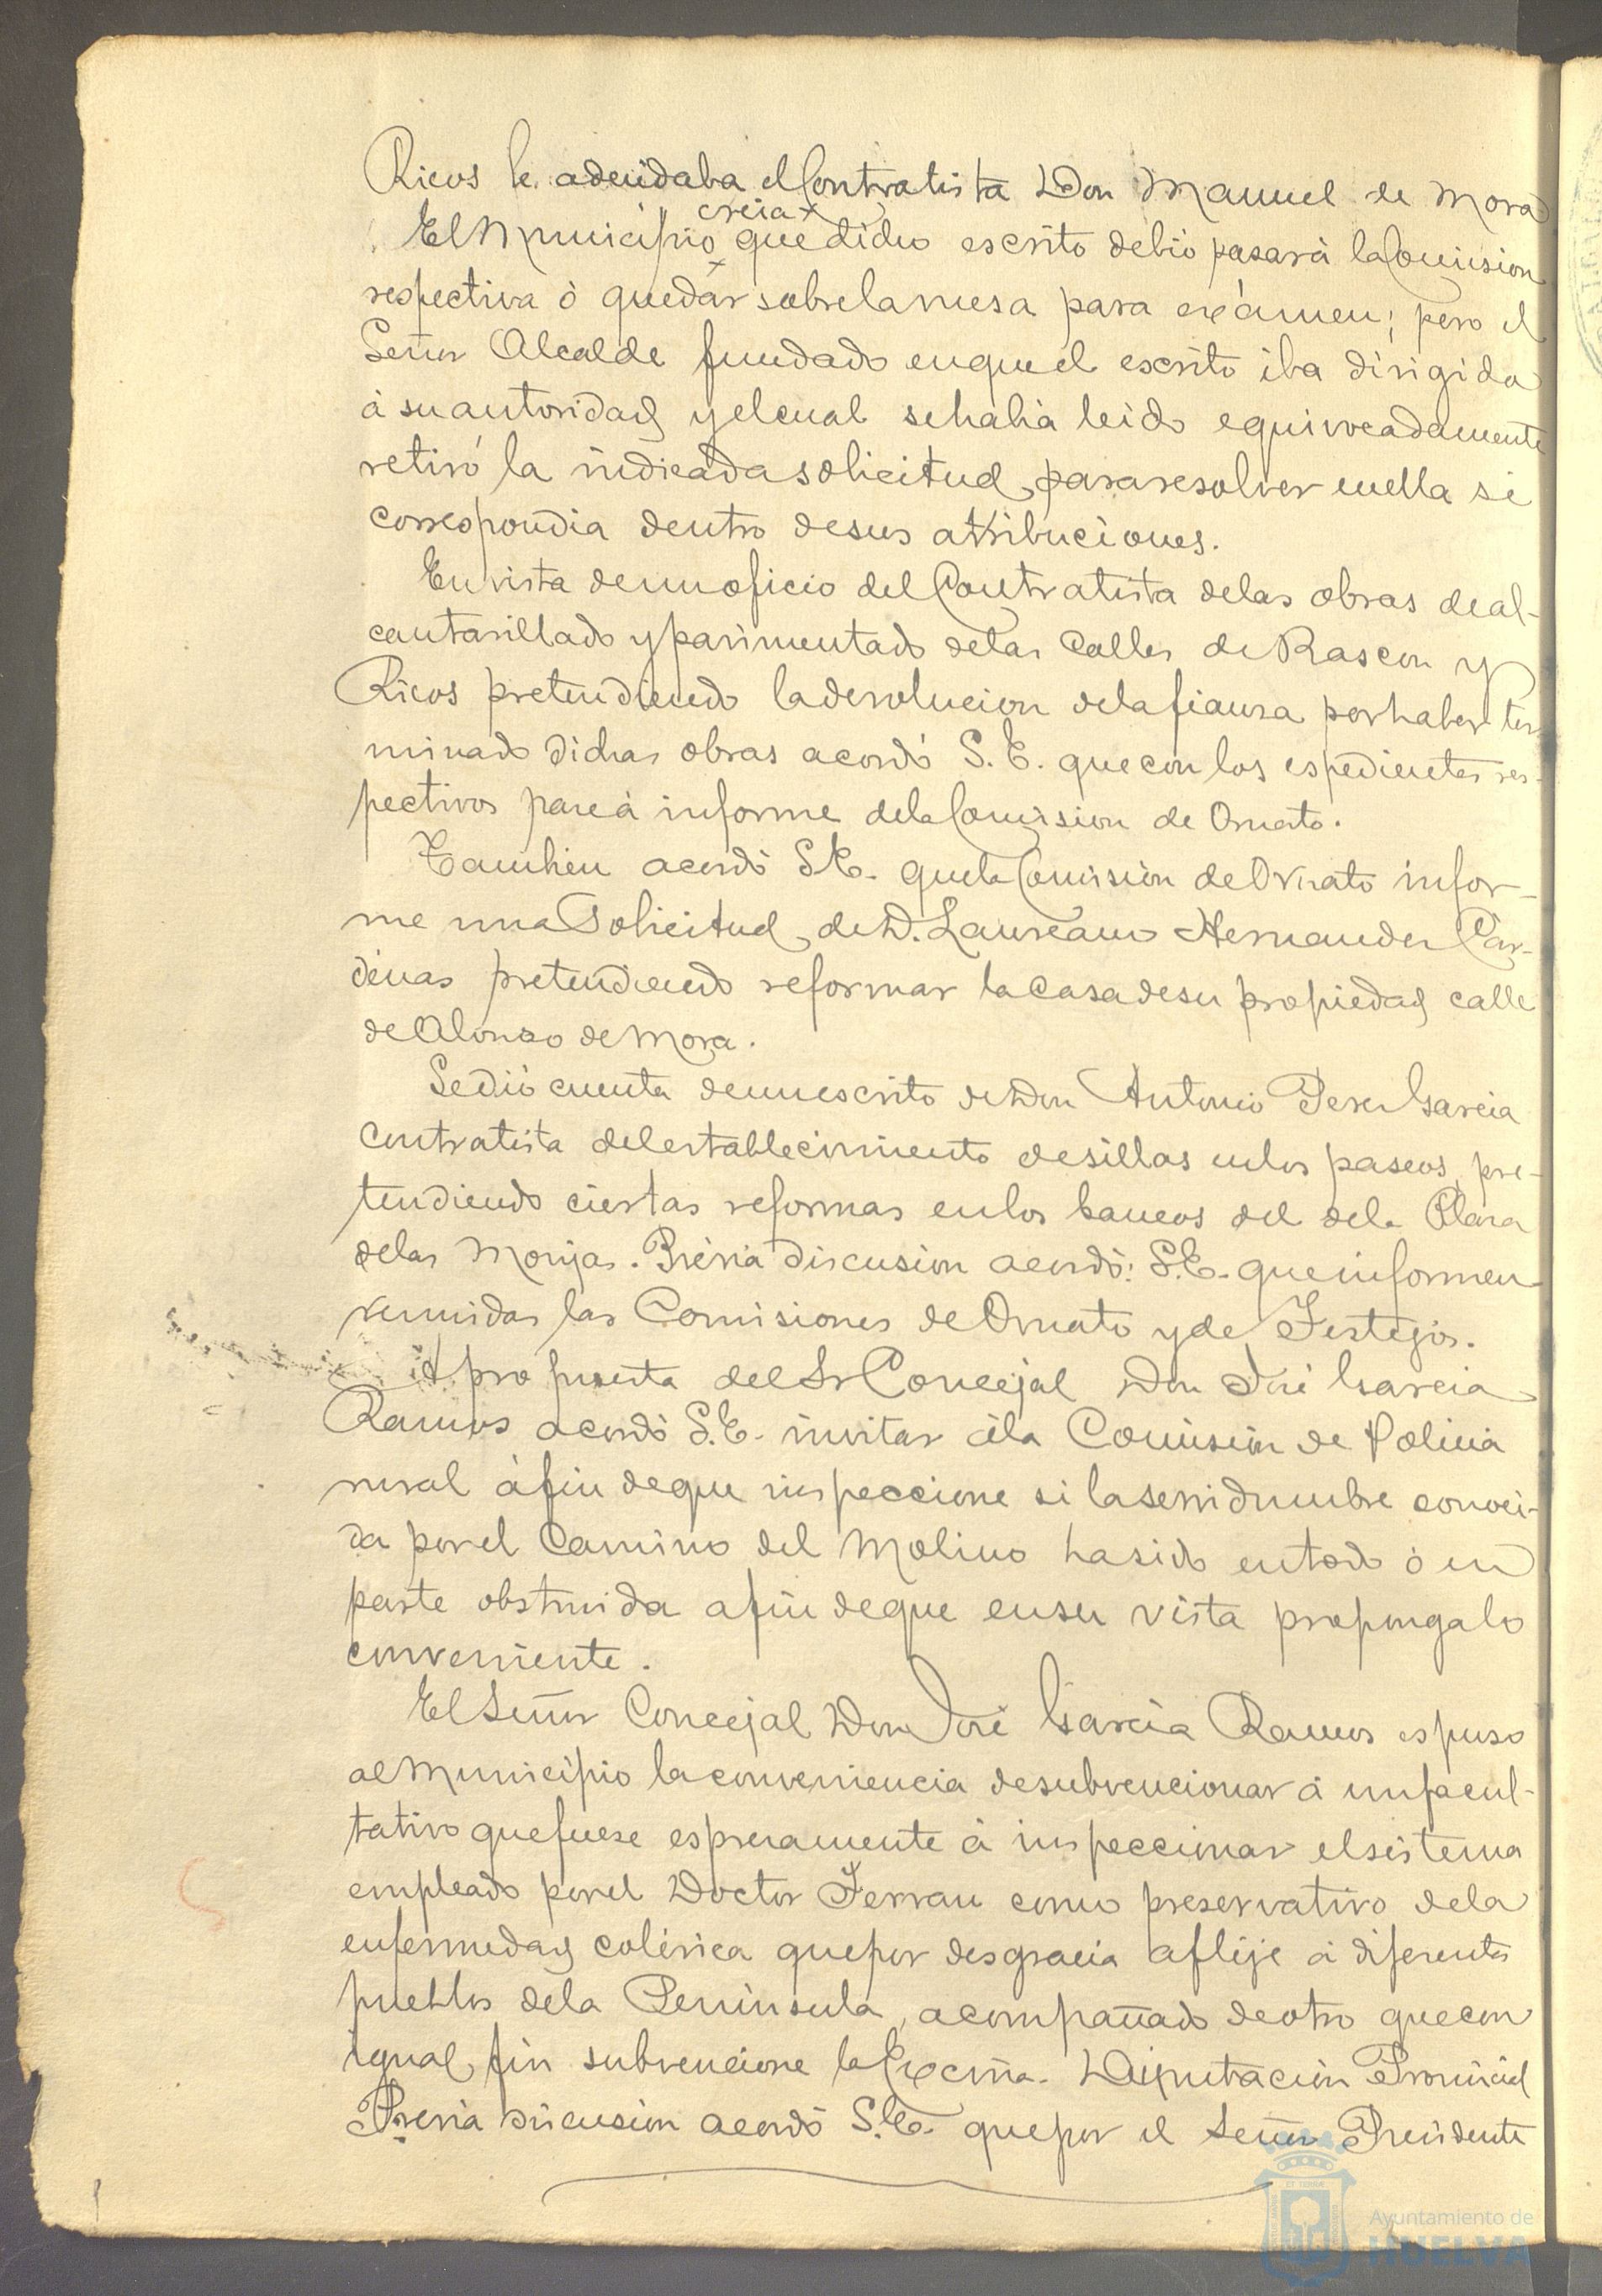 Ricos le adeudaba el Contratista Don Manuel de Mora
creia x
El Municipio x que dicho escrito debió pasar á la Comision
respectiva ó quedar sobre la mesa para exámen; pero el
Señor Alcalde fundado en que el escrito iba dirigido
á su autoridad y el cual se habia leido equivocadamente
retiró la indicada solicitud, para resolver en ella si
correspondia dentro de sus attribuciones.
En vista de un oficio del Contratista de las obras de al-
cantarillado y pavimentado de las Calles de Rascon y
Ricos pretendiendo la devolucion de la fianza por haber ter
minado dichas obras acordó S. E. que con los espedientes res-
pectivos pase á informe de la Comision de Ornato.
Tambien acordó S. E. que la Comision de Ornato infor-
me una Solicitud de D. Laureano Hernandez Cár-
denas pretendiendo reformar la Casa de su propiedad calle
de Alonso de Mora.
Se dió cuenta de un escrito de Don Antonio Perez Garcia
Contratista del establecimiento de sillas en los paseos, pre-
tendiendo ciertas reformas en los bancos del de la Plaza
de las Monjas. Prévia discusion acordó: S. E. que informen
reunidas las Comisiones de Ornato y de Festejos.
A propuesta del Sr Concejal Don José Garcia
Ramos acordó S. E. invitar á la Comision de Policia
rural á fin de que inspeccione si la servidumbre conoci-
da por el Camino del Molino ha sido en todo ó en
parte obstruida a fin de que en su vista proponga lo
conveniente.
El Señor Concejal Don José Garcia Ramos espuso
al Municipio la conveniencia de subvencionar á un facul-
tativo que fuese espresamente á inspeccionar el sistema
empleado por el Doctor Ferran como preservativo de la
enfermedad colérica que por desgracia aflije á diferentes
pueblos de la Peninsula, acompañado de otro que con
igual fin subvencione la Excma. Diputacion Provincial
Prévia discusion acordó S. E. que por el Señor Presidente
Ayuntamiento de
HUELVA